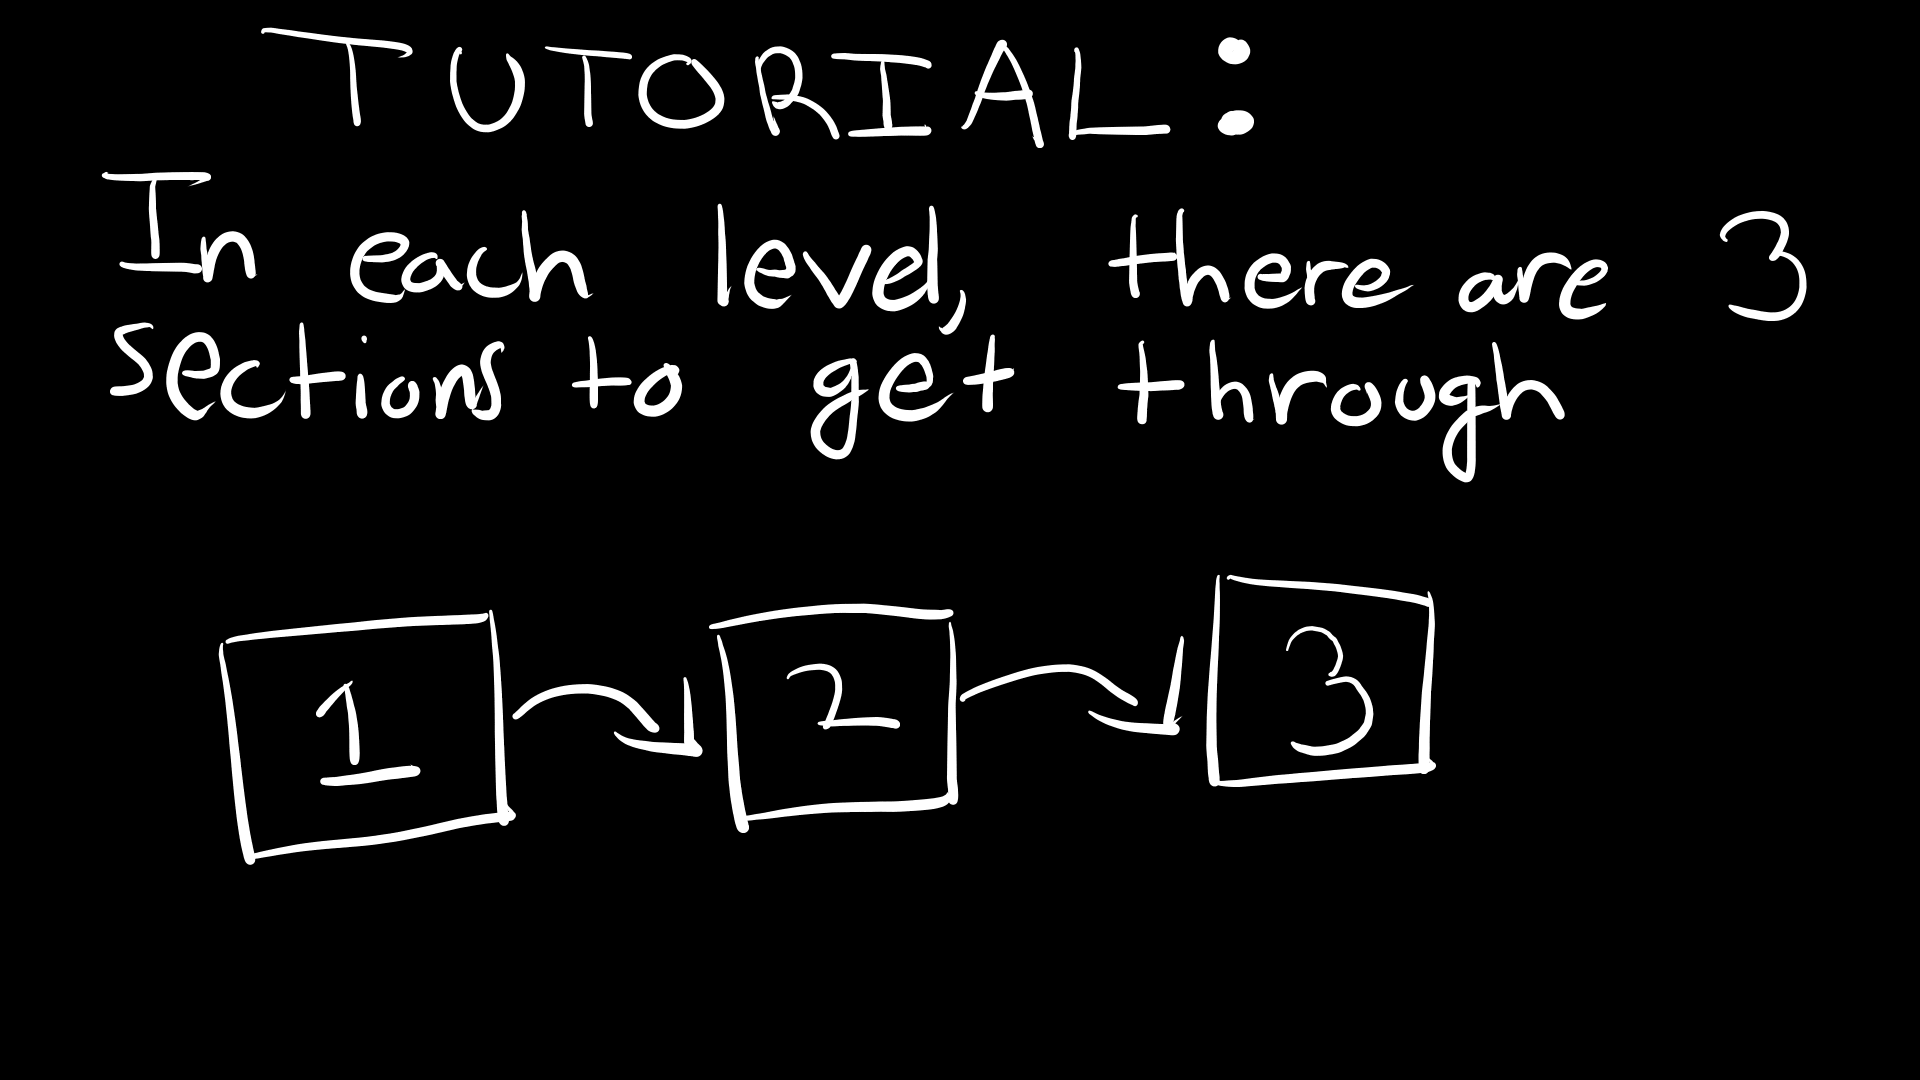 TUTORIAL:
In each level, there are 3
sections to get through
1 2 3